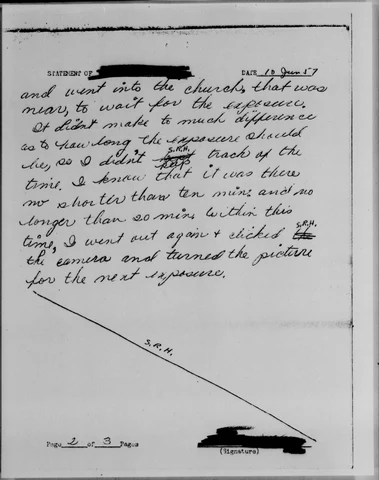 STATEMENT OF
DATE 10 Jun 57
and went into the church, that was
near, to wait for the exposure.
It didn't make to much difference
as to how long the exposure should
S.R.H.
be, so I didn't keep track of the
time. I know that it was there
no shorter than ten min. and no
longer than 20 min. Within this
S.R.H.
time, I went out again + clicked the
the camera and turned the picture
for the next exposure.
S.R.H.
Page 2 of 3 Pages
(Signature)